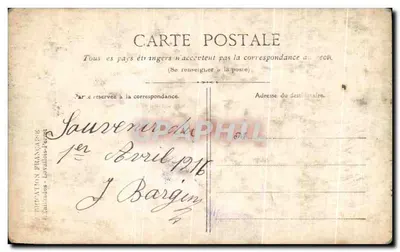 CARTE POSTALE
Tous les pays étrangers n'acceptent pas la correspondance au recto
(Se renseigner à la poste)
Partie réservée à la correspondance.
Adresse du destinataire.
Souvenir du
1er Avril 1916
J Bargin
ÉDITION FRANÇAISE
PHPIT